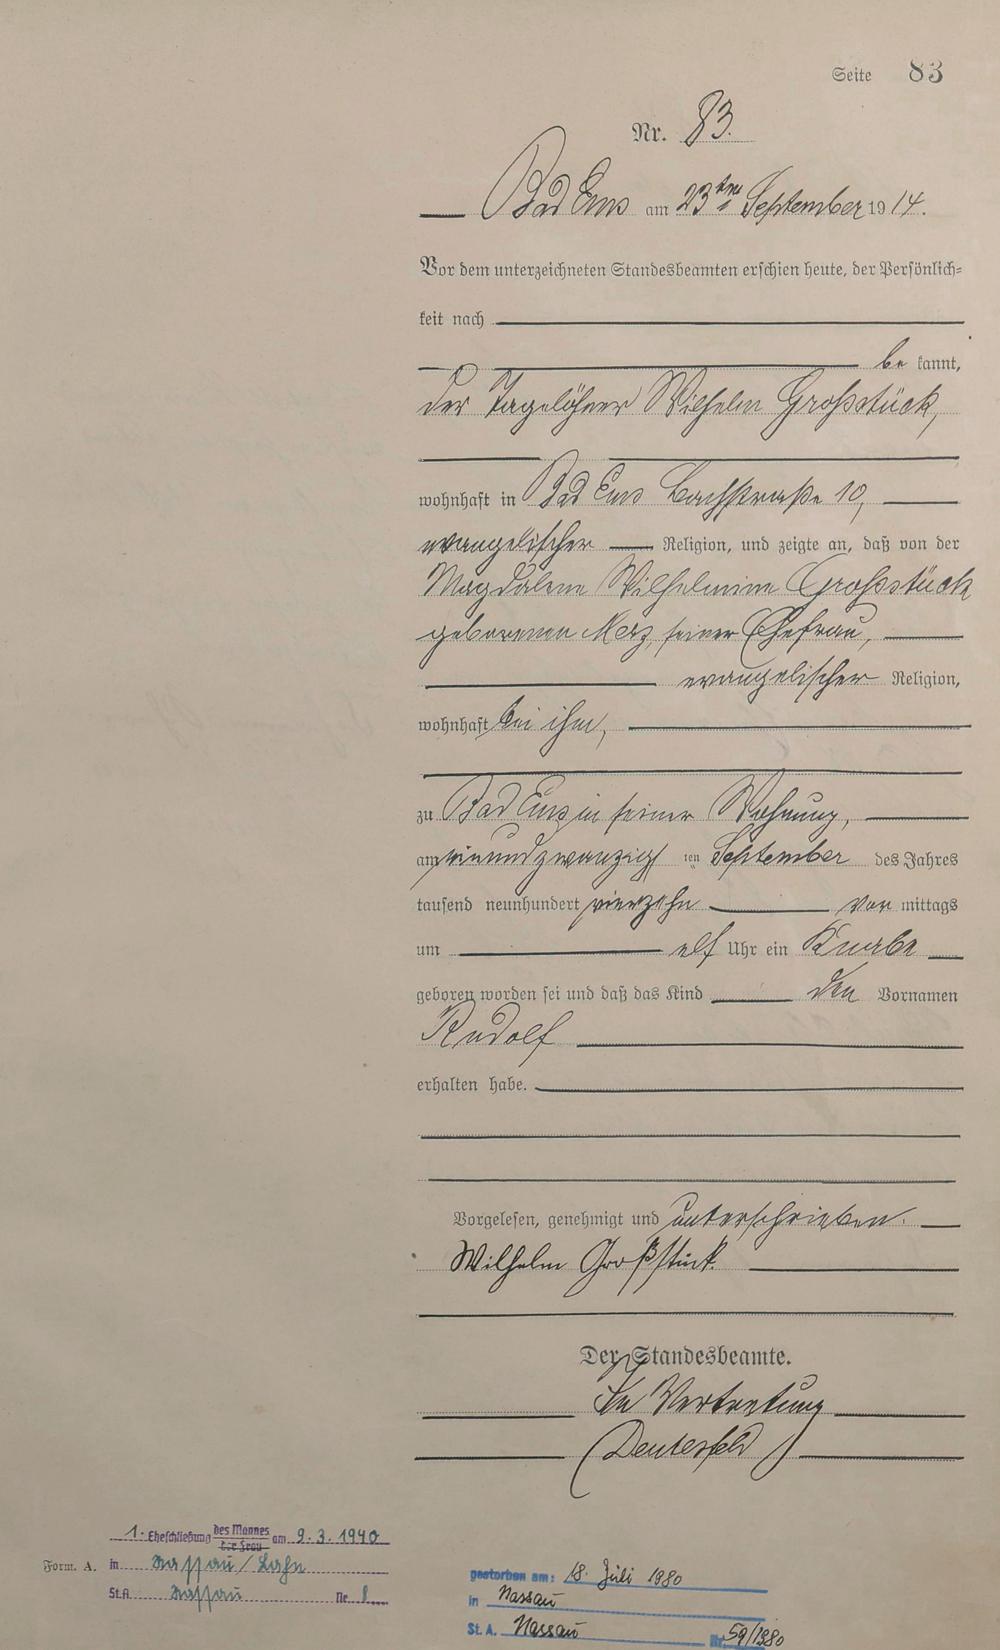 Seite 83
Nr. 83.
Bad Ems am 23ten September 1914.
Vor dem unterzeichneten Standesbeamten erschien heute, der Persönlich-
keit nach
be kannt,
der Tagelöhner Wilhelm Großstück,
wohnhaft in Bad Ems Bachstraße 10,
evangelischer Religion, und zeigte an, daß von der
Magdalene Wilhelmine Großstück
geborenen Merz, seiner Ehefrau,
evangelischer Religion,
wohnhaft bei ihm,
zu Bad Ems in seiner Wohnung,
am einundzwanzigsten September des Jahres
tausend neunhundert vierzehn vor mittags
um elf Uhr ein Knabe
geboren worden sei und daß das Kind den Vornamen
Rudolf
erhalten habe.
Vorgelesen, genehmigt und unterschrieben.
Wilhelm Großstück
Der Standesbeamte.
In Vertretung
1. Eheschließung des Mannes der Frau am 9.3.1940
Form. A. in Nassau/Lahn
St.A. Nassau Nr.
gestorben am: 18. Juli 1980
in Nassau
St. A. Nassau Nr. 59/1980